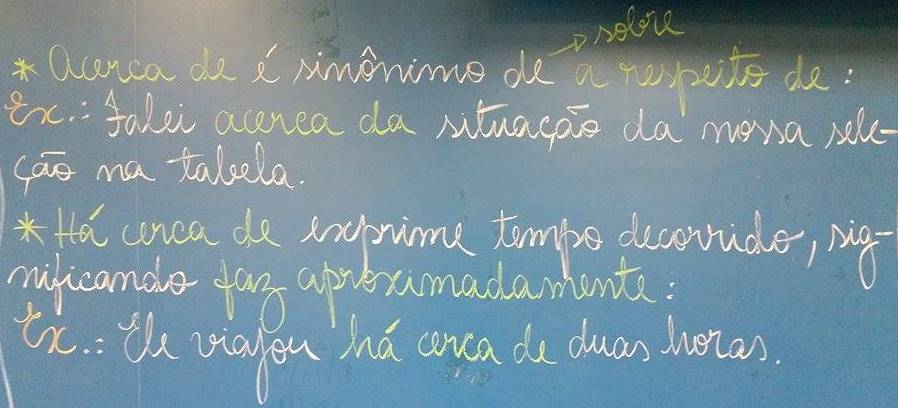 → sobre
* Acerca de é sinônimo de a respeito de:
Ex.: Falei acerca da situação da nossa sele-
ção na tabela.
* Há cerca de exprime tempo decorrido, sig-
nificando faz aproximadamente:
Ex.: Ele viajou há cerca de duas horas.